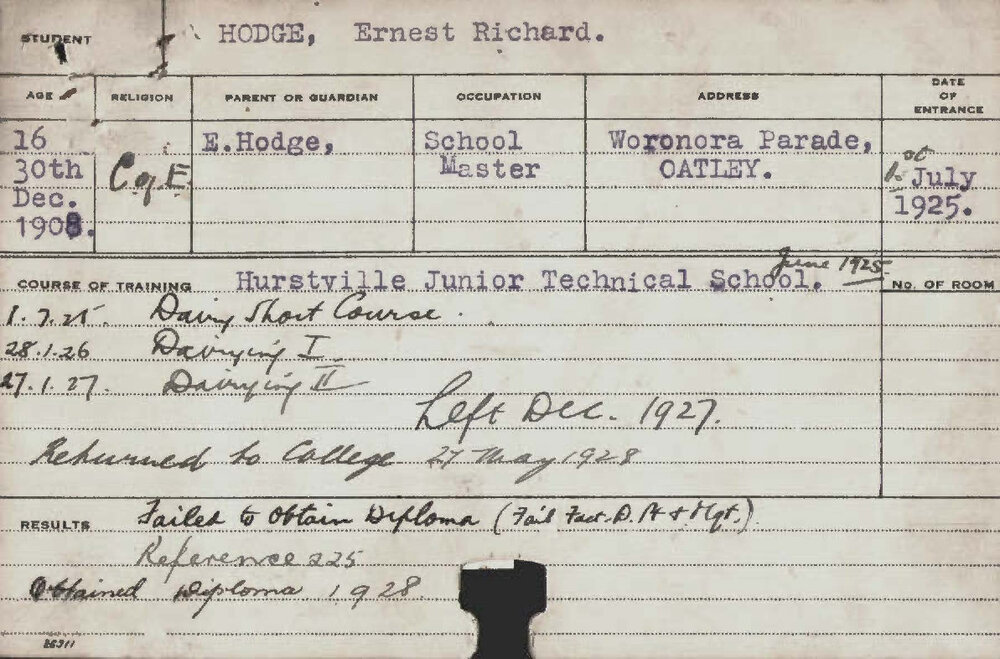 STUDENT HODGE, Ernest Richard.
AGE RELIGION PARENT OR GUARDIAN OCCUPATION ADDRESS DATE OF ENTRANCE
16 E.Hodge, School Woronora Parade,
30th C of E Master OATLEY. 1st July
Dec. 1925.
1908.
June 1925
COURSE OF TRAINING Hurstville Junior Technical School. No. OF ROOM
1.7.25. Dairy Short Course.
28.1.26 Dairying I
27.1.27. Dairying II
Left Dec. 1927.
Returned to College 27 May 1928
RESULTS Failed to Obtain Diploma (Fail Fact. D. & Mgt.)
Reference 225
Obtained Diploma 1928.
26311